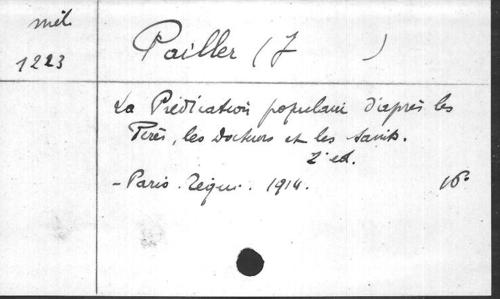 mél
1223
Pailler (J )
La Prédication populaire d'après les
Pères, les Docteurs et les Saints.
2e ed.
- Paris. Téqui. 1914. 16°